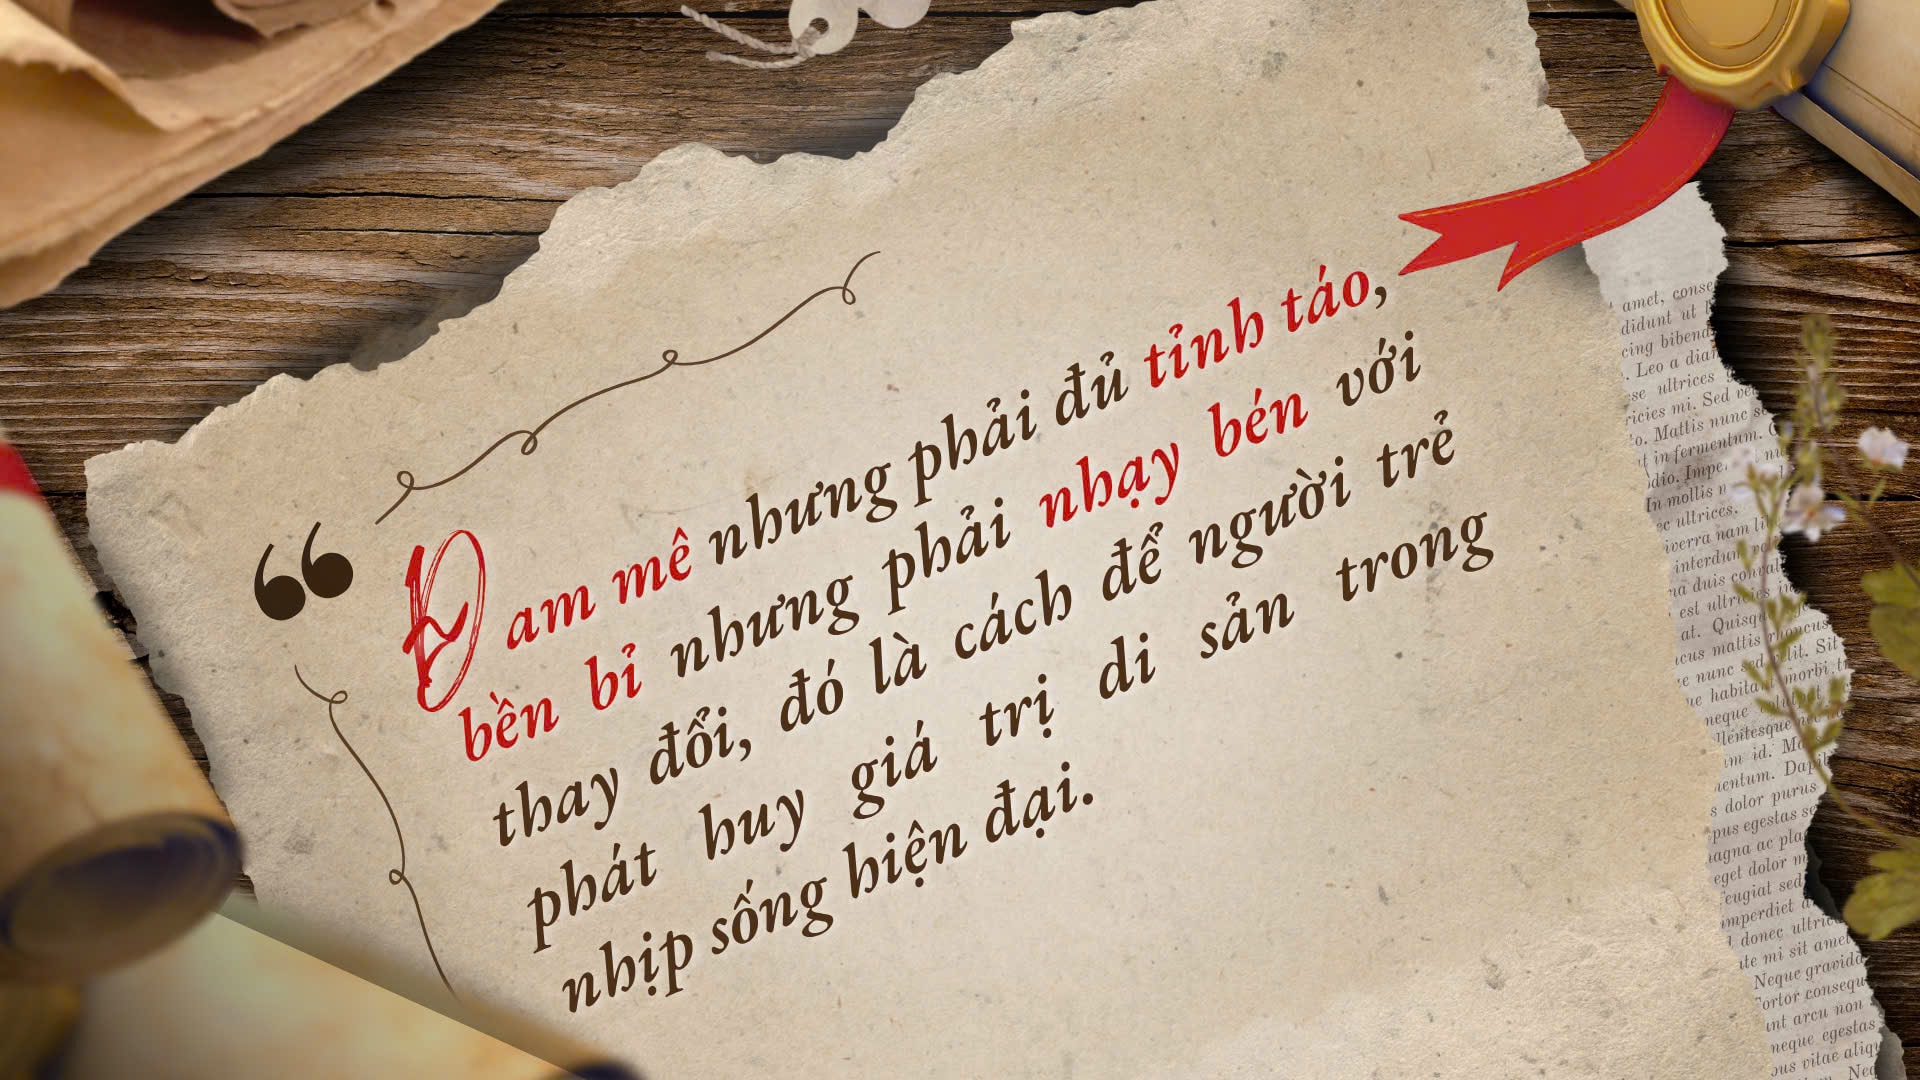 “
Đam mê nhưng phải đủ tỉnh táo,
bền bỉ nhưng phải nhạy bén với
thay đổi, đó là cách để người trẻ
phát huy giá trị di sản trong
nhịp sống hiện đại.
amet, conse
didunt ut l
cing bibend
. Leo a dian
se ultrices
ricies mi. Sed ve
to. Mattis nunc se
t in fermentum. C
odio. Impe
In mollis n
ec ultrices.
iverra nam li
interdum
na duis conval
est ultricies in
at. Quisqu
cus mattis rhoncus
e nunc sed velit. Sit
e habitant morbi tr
neque volutpat
llentesque nec
m id. Ma
mentum. Dapib
s dolor purus
pus egestas se
magna ac pla
eget dolor m
feugiat sed
imperdiet d
donec ultric
te mi sit amet
Neque gravida
Tortor consequ
nt arcu non
neque egestas
us vitae aliqu
Neq